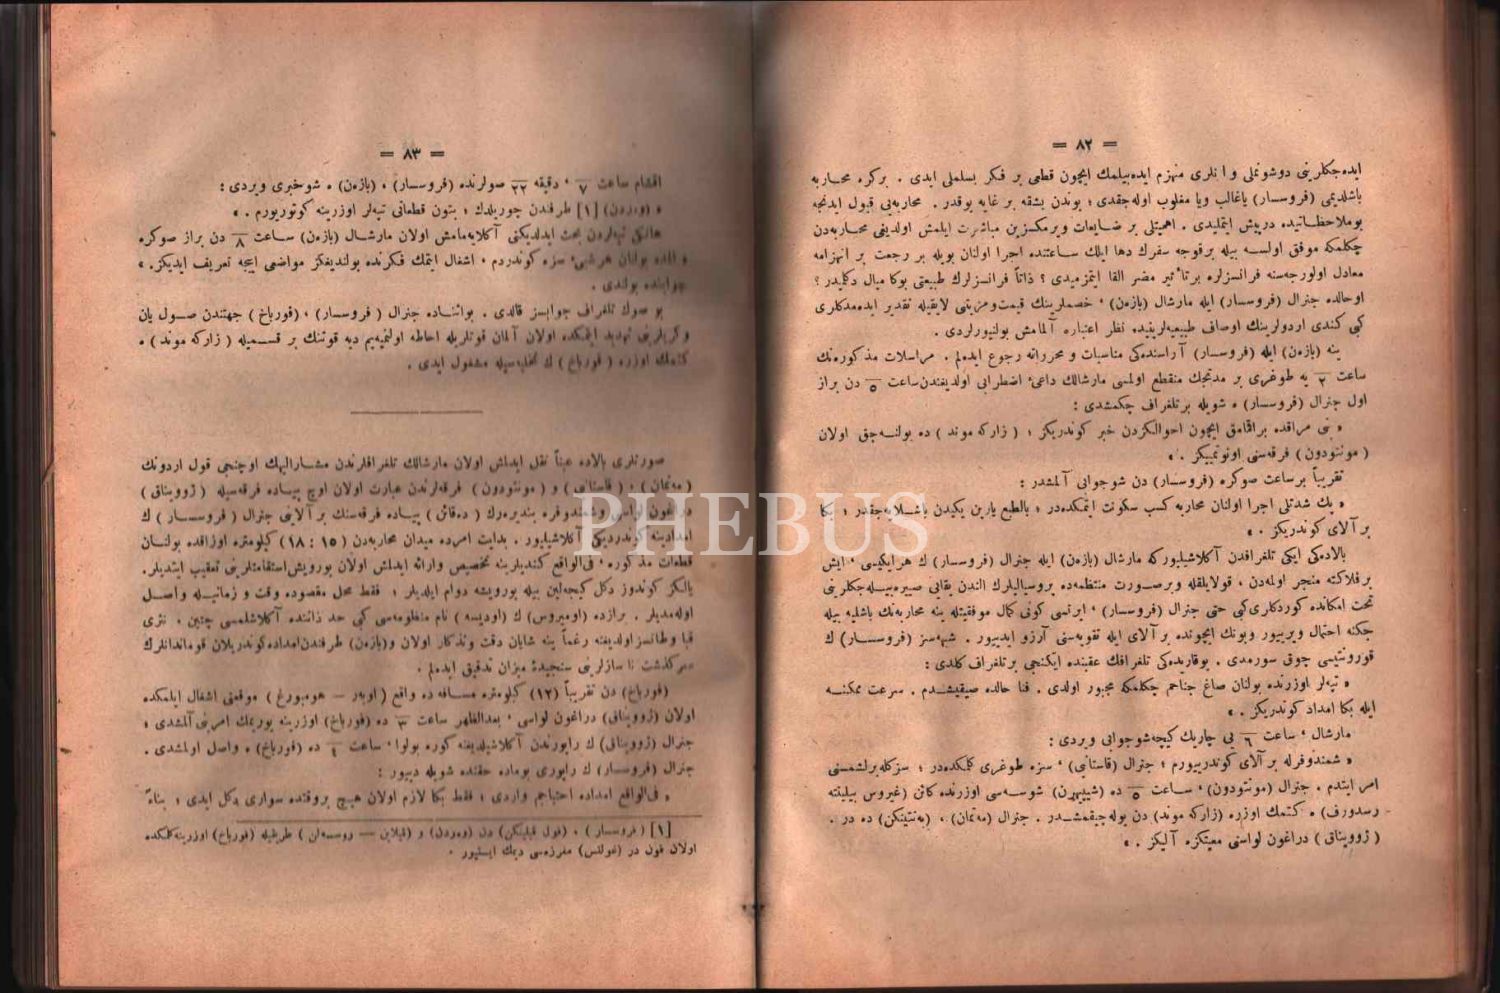 = ٨٢ =
ایده‌جكلرینی دوشونملی و انلری منهزم ایده‌بیلمك ایچون قطعی بر فكر بسلملی ایدی . بركره محاربه
باشلدیمی (فروسسار) یاغالب ویا مغلوب اوله‌جقدی ؛ بوندن بشقه بر غایه یوقدر . محاربه‌یی قبول ایدنجه
بوملاحظاتیده درپیش ایتملیدی . اهمیتلی بر ضایعات ویرمكسزین مباشرت ایلمش اولدیغی محاربه‌دن
چكلمكه موفق اولسه بیله برقوجه سفرك دها ایلك ساعتنده اجرا اولنان بویله بر رجعت بر انهزامه
معادل اولورجه‌سنه فرانسزلره برتأثیر مضر القا ایتمزمیدی ؟ ذاتاً فرانسزلرك طبیعتی بوكا میال دكلمیدر ؟
اوحالده جنرال (فروسسار) ایله مارشال (بازەن) ، خصملرینك قیمت‌ومزیتی لایقیله تقدیر ایده‌مدكلری
كبی كندی اردولرینك اوصاف طبیعیه‌لرینیده نظر اعتباره آلمامش بولنیورلردی .
ینه (بازەن) ایله (فروسسار) آراسنده‌كی مناسبات و محرراته رجوع ایده‌لم . مراسلات مذكوره‌نك
ساعت ٢ یه طوغری بر مدتجك منقطع اولمسی مارشالك داعیٔ اضطرابی اولدیغندن‌ساعت ٥ دن براز
اول جنرال (فروسسار) ه شویله برتلغراف چكمشدی :
« بنی مراقده براقمامق ایچون احوالكزدن خبر كوندریكز ؛ (زاركه موند) ده بولنه‌جق اولان
(مونتودون) فرقه‌سنی اونوتمییكز . »
تقریباً برساعت صوكره (فروسسار) دن شوجوابی آلمشدر :
« پك شدتلی اجرا اولنان محاربه كسب سكونت ایتمكده‌در ؛ بالطبع یارین یكیدن باشلایه‌جقدر ؛ بكا
بر آلای كوندریكز . »
بالاده‌كی ایكی تلغرافدن آكلاشیلیوركه مارشال (بازەن) ایله جنرال (فروسسار) ك هرایكیسی ، ایش
برفلاكته منجر اولمه‌دن ، قولایلقله وبرصورت منتظمه‌ده پروسیالیلرك الندن یقایی صیره‌بیله‌جكلرینی
تحت امكانده كوردكلری‌كبی حتی جنرال (فروسسار) ، ایرتسی كونی كمال موفقیتله ینه محاربه‌نك باشلیه بیله
جكنه احتمال ویرییور وبونك ایچونده بر آلای ایله تقویه‌سنی آرزو ایدییور . شبهه‌سز (فروسسار) ك
قورونتیسی چوق سورمدی . یوقاریده‌كی تلغرافك عقبنده ایكنجی برتلغراف كلدی :
« تپه‌لر اوزرنده بولنان صاغ جناحم چكلمكه مجبور اولدی . فنا حالده صیقیشدم . سرعت ممكنه
ایله بكا امداد كوندریكز . »
مارشال ، ساعت ٦ یی چاریك كیچه شوجوابی ویردی :
« شمندوفرله بر آلای كوندرییورم ؛ جنرال (قاستانیی) ، سزه طوغری كلمكده‌در ؛ سزكله برلشمسنی
امر ایتدم . جنرال (مونتودون) ، ساعت ٥ ده (شپیپرن) شوسه‌سی اوزرنده كائن (غیروس بیلیغته
رسدورف) ه كتمك اوزره (زاركه موند) دن یوله چیقمشدر . جنرال (مەتمان) ، (بەنتینكن) ده در .
(ژووینیاق) دراغون لواسنی معیتكزه آلیكز . »
= ٨٣ =
اقشام ساعت ٧ ، دقیقه ٢٢ صولرنده (فروسسار) ، (بازەن) ه شوخبری ویردی :
« (وەردن) [١] طرفندن چوریلدك ؛ بتون قطعاتی تپه‌لر اوزرینه كوتوریورم . »
هانكی تپه‌لردن بحث ایدلدیكنی آكلایه‌مامش اولان مارشال (بازەن) ساعت ٨ دن براز صوكره
« المده بولنان هرشیٔ سزه كوندردم ، اشغال ایتمك فكرنده بولندیغكز مواضعی ایجه تعریف ایدیكز. »
جوابنده بولندی .
بو صوك تلغراف جوابسز قالدی . بواثناده جنرال (فروسسار) ، (فورباخ) جهتندن صول یان
وكریلرینی تهدید ایتمكده اولان آلمان قوتلریله احاطه اولنمیه‌یم دیه قوتنك بر قسمیله (زاركه موند) ه
كتمك اوزره (فورباخ) ك تخلیه‌سیله مشغول ایدی .
صورتلری بالاده عیناً نقل ایدلمش اولان مارشالك تلغرافلرندن مشارالیهك اوچنجی قول اردونك
(مەتمان) ، (قاستانیی) و (مونتودون) فرقه‌لرندن عبارت اولان اوچ پیاده فرقه‌سیله (ژووینیاق)
دراغون لواسنی وشمندوفره بندیره‌رك (دەقائن) پیاده فرقه‌سنك بر آلاینی جنرال (فروسسار) ك
امدادینه كوندردیكی آكلاشیلیور . بدایت امرده میدان محاربه‌دن (١٥ : ١٨) كیلومتره اوزاقده بولنان
قطعات مذكوره ، فی‌الواقع كندیلرینه تخصیص وارائه ایدلمش اولان یورویش‌استقامتلرینی تعقیب ایتدیلر.
یالكز كوندوز دكل كیجه‌لین بیله یورویشه دوام ایلدیلر ؛ فقط محل مقصوده وقت و زمانیله واصل
اوله‌مدیلر . برازده (اومیروس) ك (اودیسه) نام منظومه‌سی كبی حد ذاتنده آكلاشلمسی چتین ، نثری
قبا وطانسزاولدیغنه رغماً ینه شایان دقت وتذكار اولان و(بازەن) طرفندن‌امداده‌كوندریلان قوماندانلرك
سركذشت ناسازلرینی سنجیدهٔ میزان تدقیق ایده‌لم .
(فورباخ) دن تقریباً (١٢) كیلومتره مسافه ده واقع (اوبەر — هومبورغ) موقعنی اشغال ایلمكده
اولان (ژووینیاق) دراغون لواسی ، بعدالظهر ساعت ٣ ده (فورباخ) اوزرینه یورمك امرینی آلمشدی ؛
جنرال (ژووینیاق) ك راپورندن آكلاشیلدیغنه كوره بولوا ، ساعت ٤ ده (فورباخ) ه واصل اولمشدی .
جنرال (فروسسار) ك راپوری بوماده حقنده شویله دییور :
« فی‌الواقع امداده احتیاجم واردی ؛ فقط بكا لازم اولان هیچ بروقتده سواری دكل ایدی ؛ بناءً
[١] (فروسسار) ، (فول قلینكن) دن (وەردن) و (قلاین — روسسەلن) طریقیله (فورباخ) اوزرینه‌كلمكده
اولان فون در (غولتس) مفرزه‌سی دیمك ایستییور .
PHEBUS